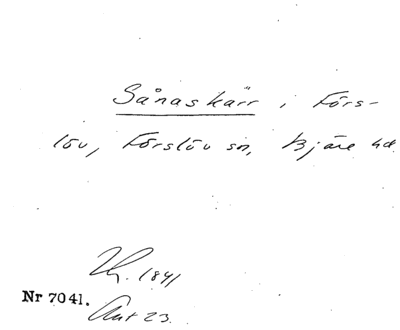 Sånaskärr i Förs-
löv, Förslöv sn, Bjäre hd.
1841
Nr 7041.
Akt 23.